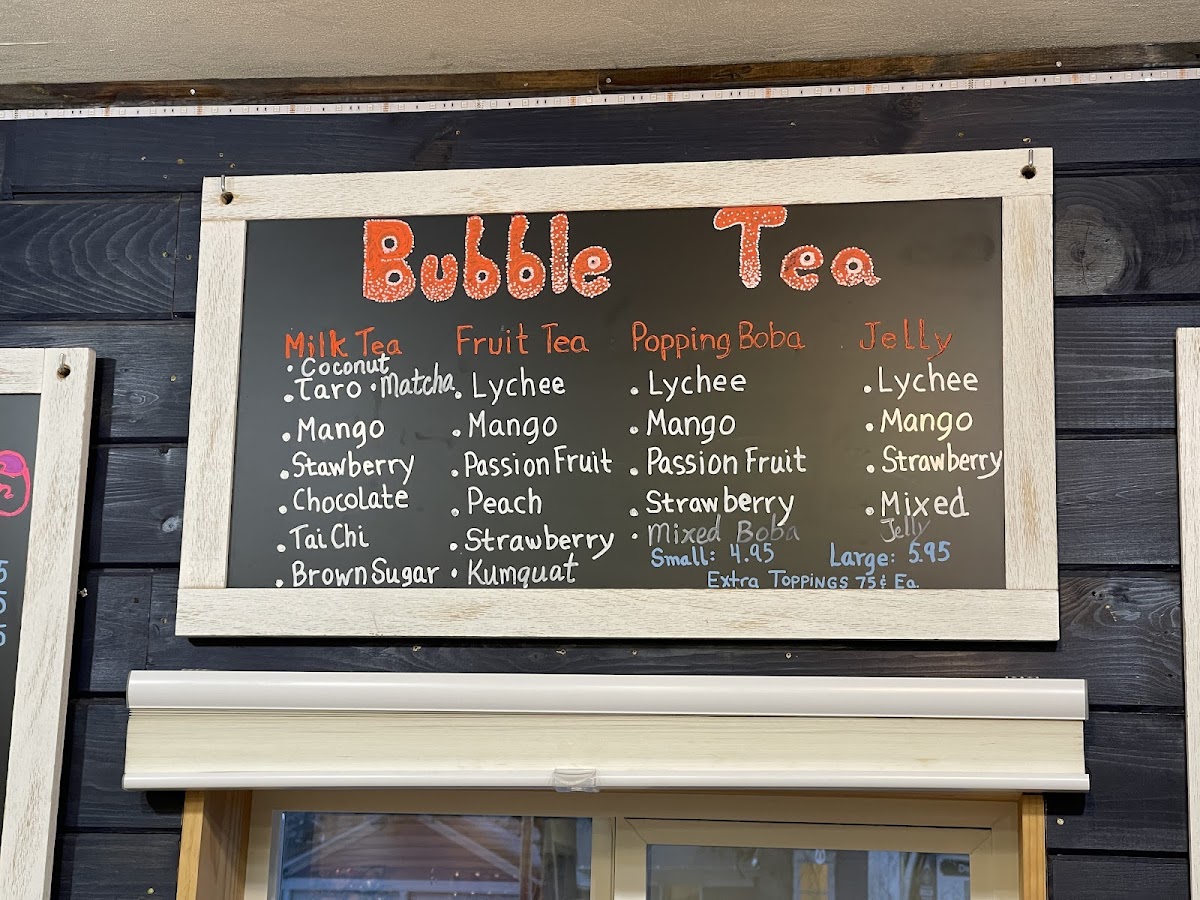 Bubble Tea
Milk Tea
• Coconut
• Taro • Matcha
• Mango
• Stawberry
• Chocolate
• Tai Chi
• Brown Sugar
Fruit Tea
• Lychee
• Mango
• Passion Fruit
• Peach
• Strawberry
• Kumquat
Popping Boba
• Lychee
• Mango
• Passion Fruit
• Strawberry
• Mixed Boba
Jelly
• Lychee
• Mango
• Strawberry
• Mixed
Jelly
Small: 4.95 Large: 5.95
Extra Toppings 75¢ Ea.